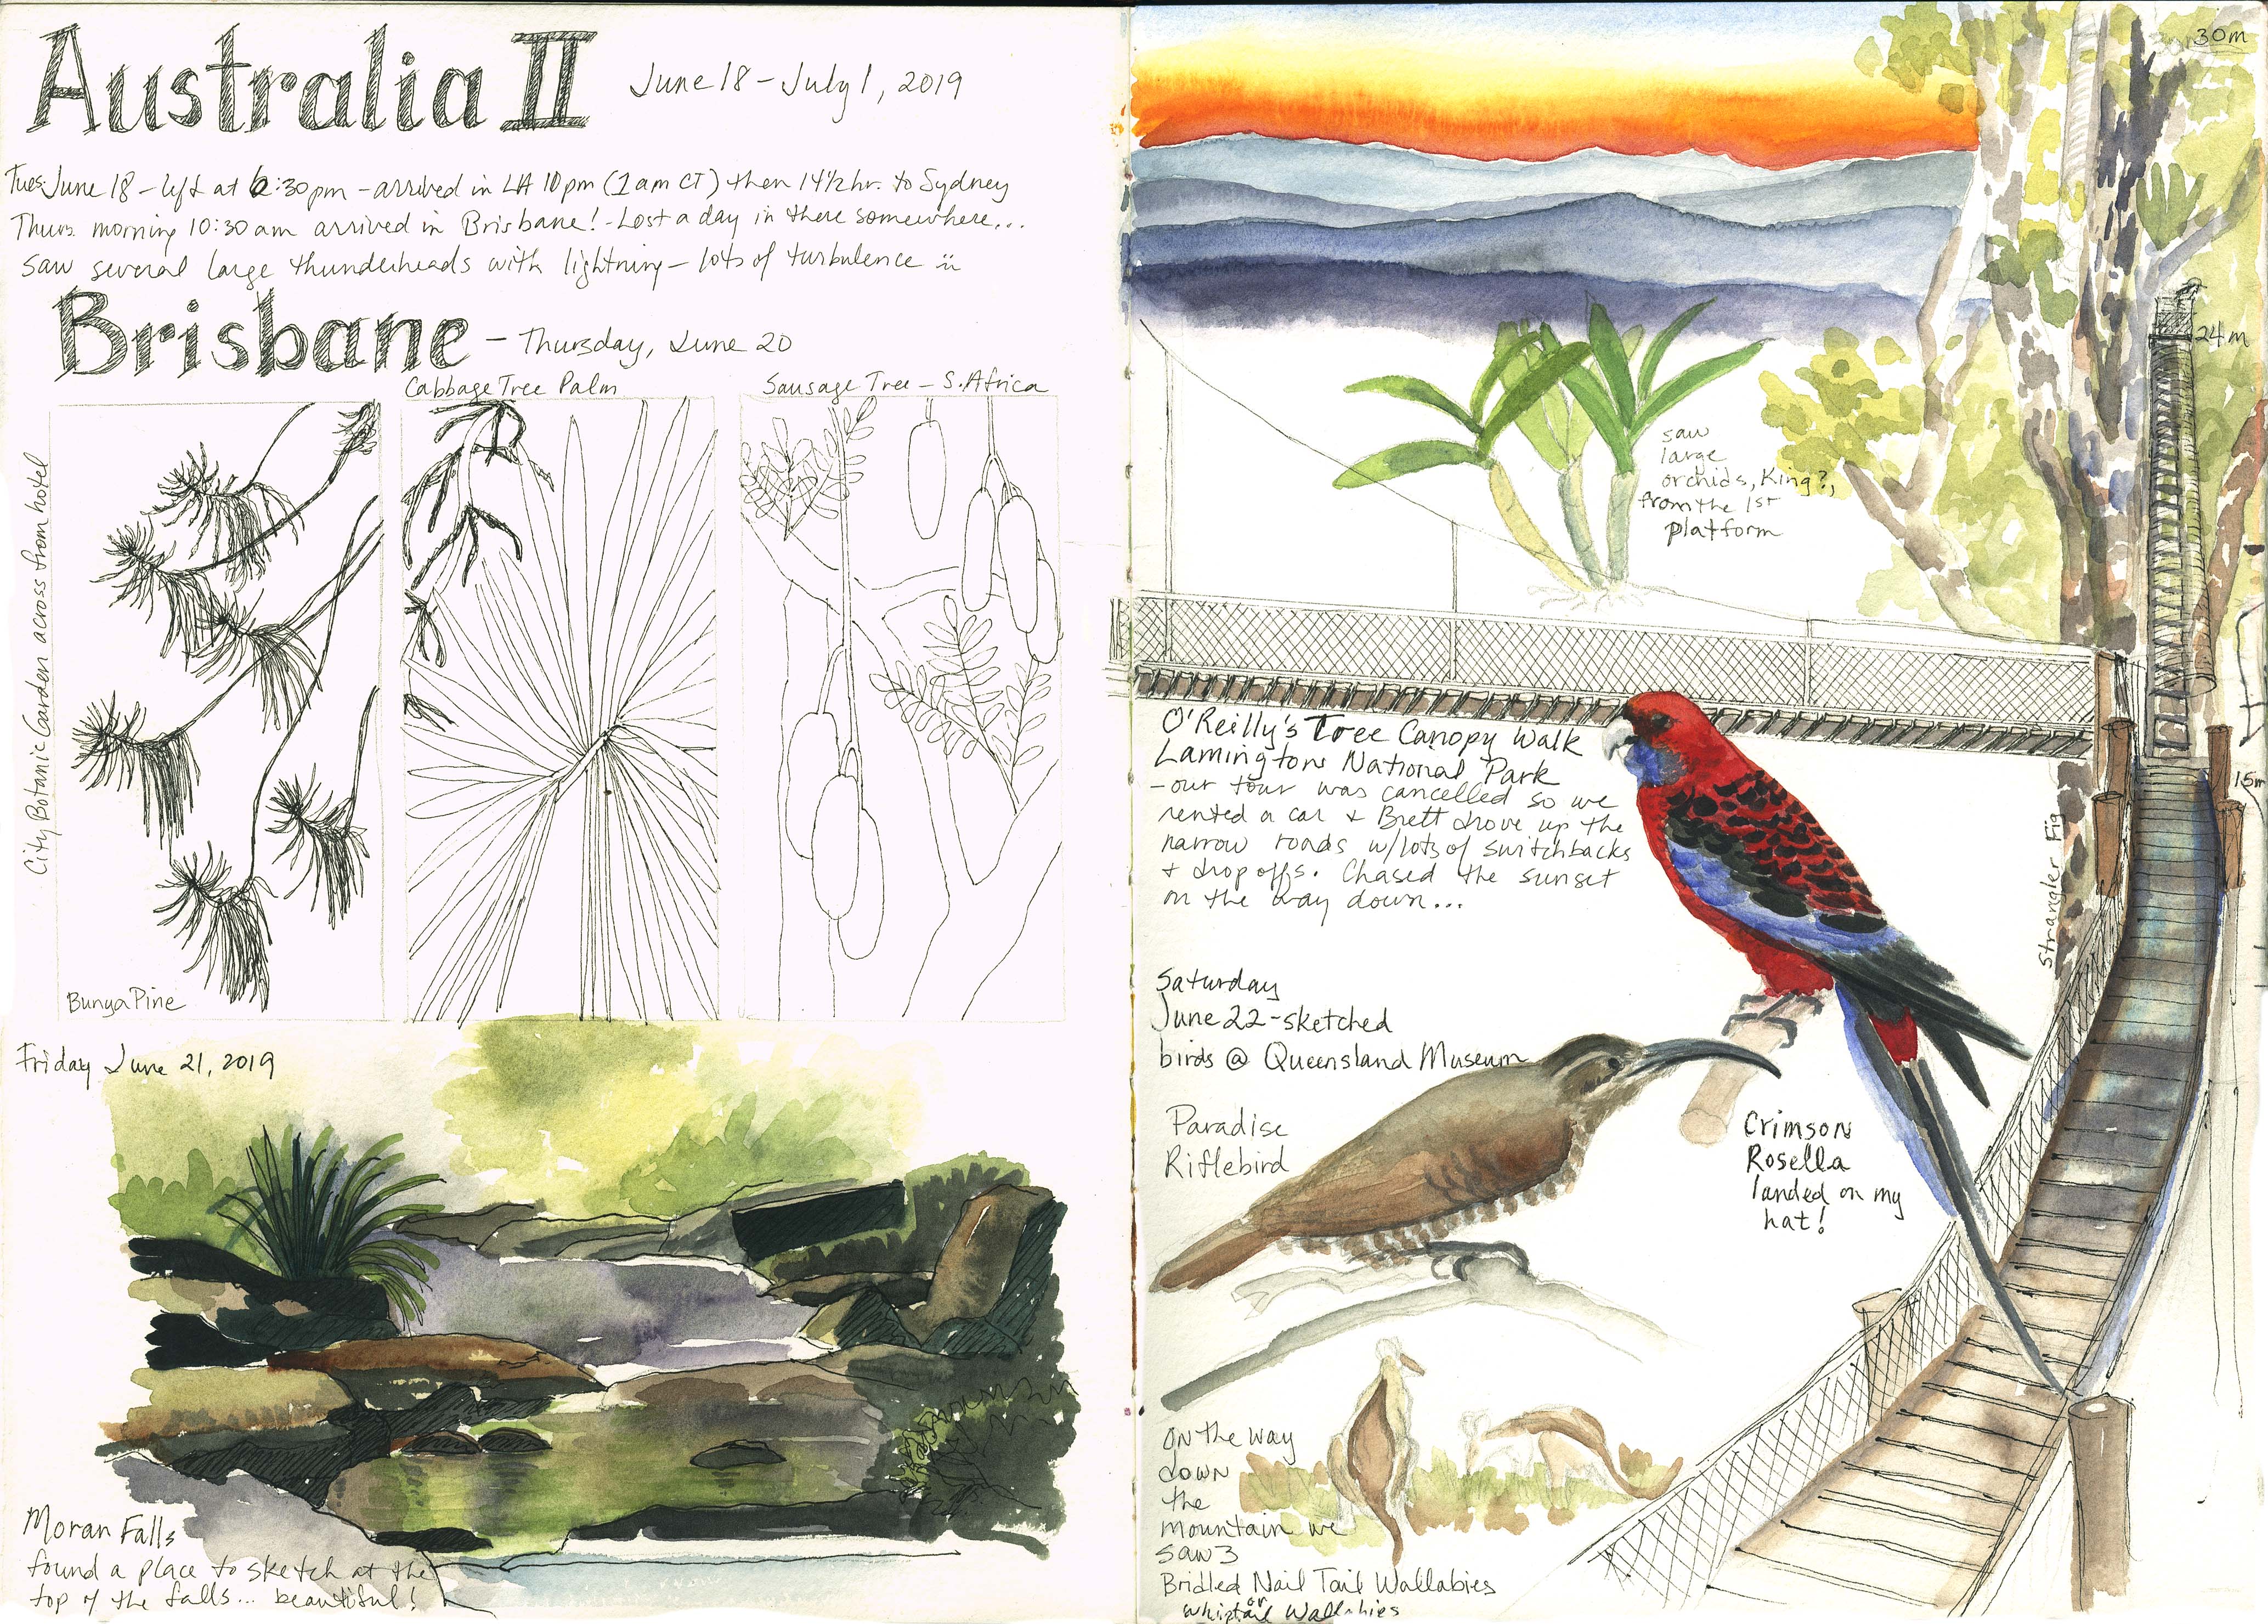 Australia II
June 18 - July 1, 2019
Tues. June 18 - left at 6:30pm - arrived in LA 10pm (1am CT) then 14½ hr. to Sydney
Thurs. morning 10:30 am arrived in Brisbane! - Lost a day in there somewhere...
saw several large thunderheads with lightning - lots of turbulence
Brisbane - Thursday, June 20
City Botanic Garden across from hotel
Cabbage Tree Palm
Sausage Tree - S. Africa
Bunya Pine
Friday June 21, 2019
Moran Falls
found a place to sketch at the
top of the falls... beautiful!
30m
24m
saw
large
orchids, King?,
from the 1st
platform
15m
O'Reilly's Tree Canopy Walk
Lamington National Park
- our tour was cancelled so we
rented a car + Brett drove up the
narrow roads w/lots of switchbacks
+ drop offs. Chased the sunset
on the way down...
Strangler Fig
Saturday
June 22 - sketched
birds @ Queensland Museum
Paradise
Riflebird
Crimson
Rosella
landed on my
hat!
on the way
down
the
mountain we
saw 3
Bridled Nail Tail Wallabies
or
Whiptail Wallabies